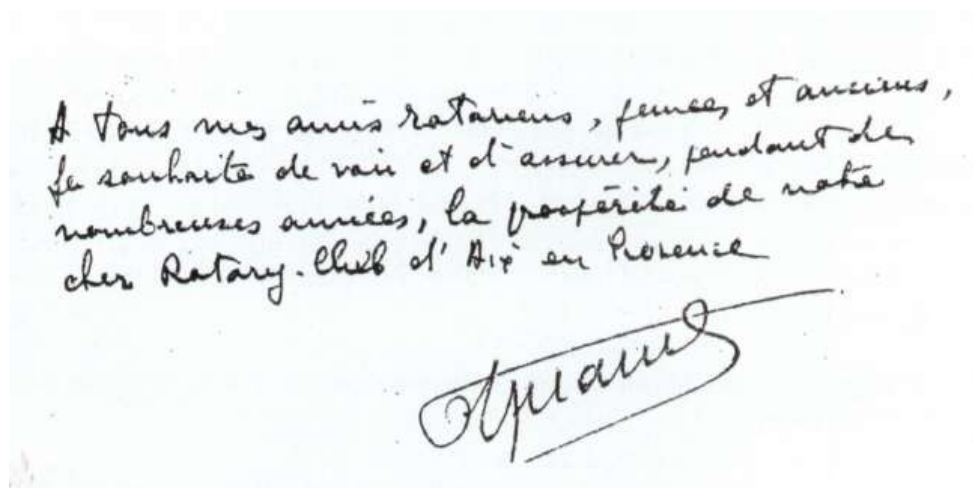 A tous mes amis rotariens, jeunes et anciens,
je souhaite de voir et d'assurer, pendant de
nombreuses années, la prospérité de notre
cher Rotary-Club d'Aix en Provence